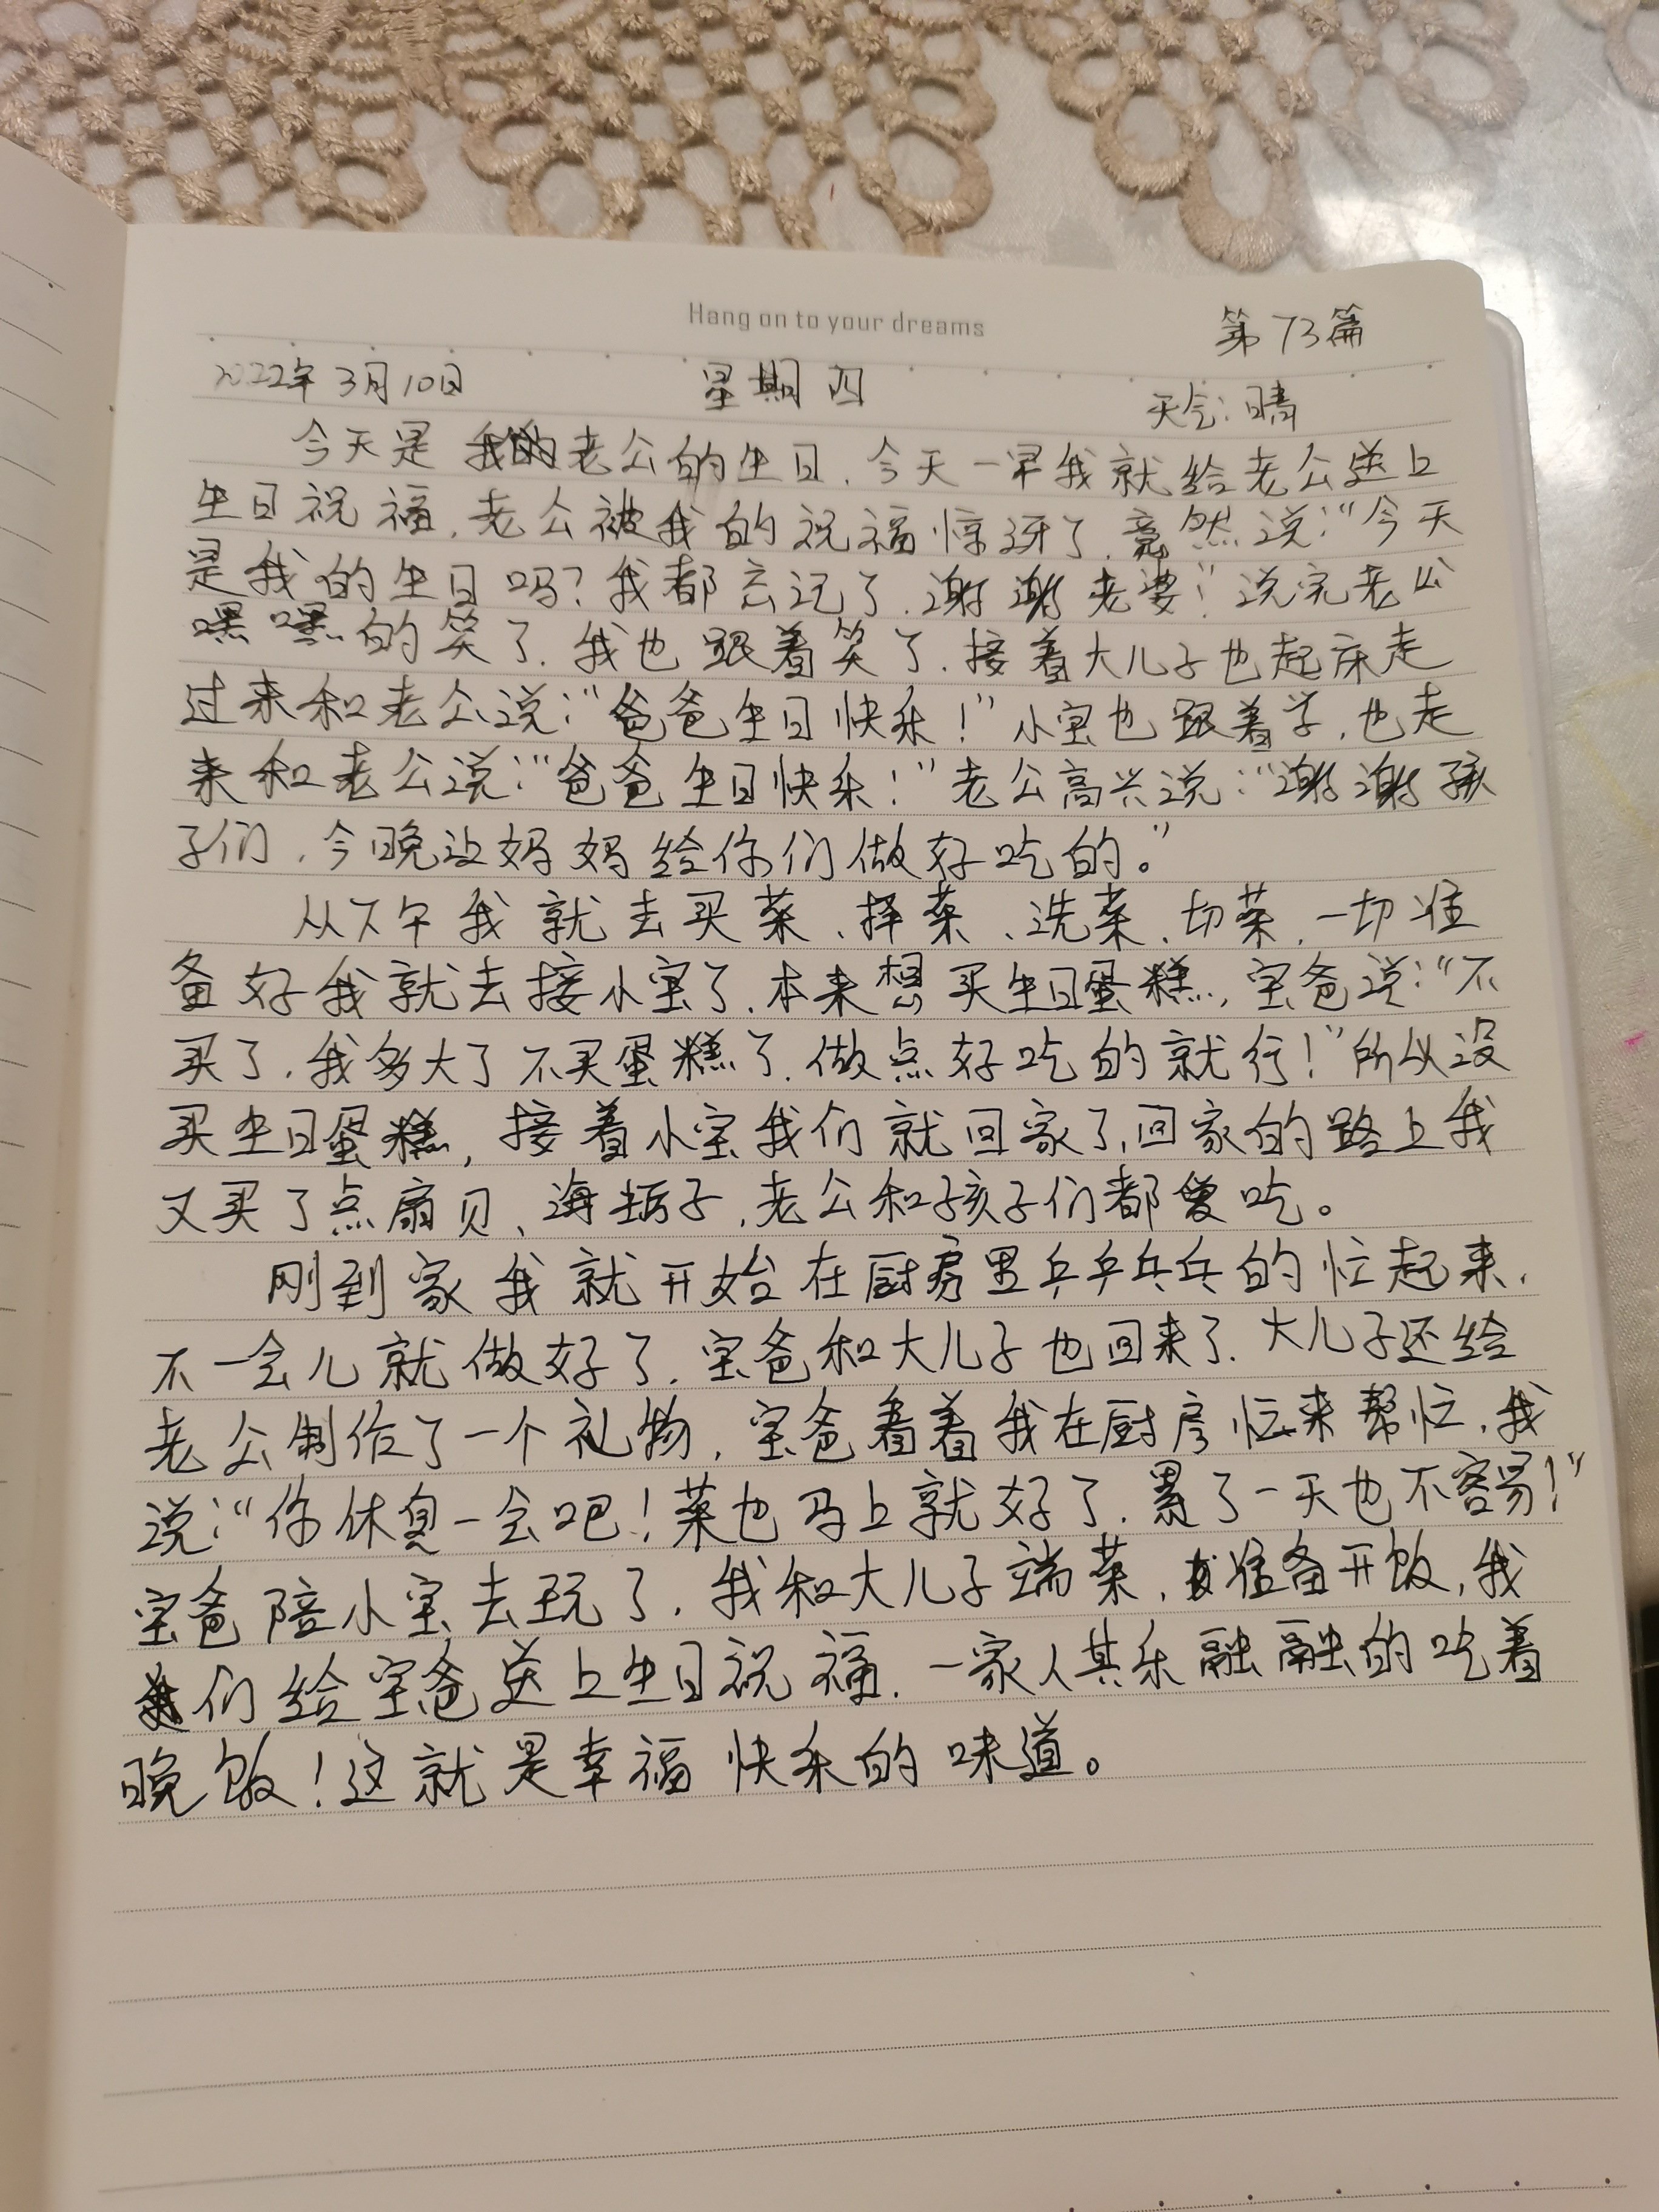 Hang on to your dreams
第73篇
2022年3月10日 星期四 天气:晴
今天是我的老公的生日,今天一早我就给老公送上
生日祝福,老公被我的祝福惊讶了,竟然说:“今天
是我的生日吗?我都忘记了,谢谢老婆!”说完老公
嘿嘿的笑了,我也跟着笑了,接着大儿子也起床走
过来和老公说:“爸爸生日快乐!”小宝也跟着学,也走
来和老公说:“爸爸生日快乐!”老公高兴说:“谢谢孩
子们,今晚让妈妈给你们做好吃的。”
从下午我就去买菜、择菜、洗菜、切菜,一切准
备好我就去接小宝了,本来想买生日蛋糕,宝爸说:“不
买了,我多大了不买蛋糕了,做点好吃的就行!”所以没
买生日蛋糕,接着小宝我们就回家了,回家的路上我
又买了点扇贝、海蛎子,老公和孩子们都爱吃。
刚到家我就开始在厨房里乒乒乓乓的忙起来,
不一会儿就做好了,宝爸和大儿子也回来了,大儿子还给
老公制作了一个礼物,宝爸看着我在厨房忙来帮忙,我
说:“你休息一会吧!菜也马上就好了,累了一天也不容易!”
宝爸陪小宝去玩了,我和大儿子端菜,准备开饭,我
们给宝爸送上生日祝福,一家人其乐融融的吃着
晚饭!这就是幸福快乐的味道。